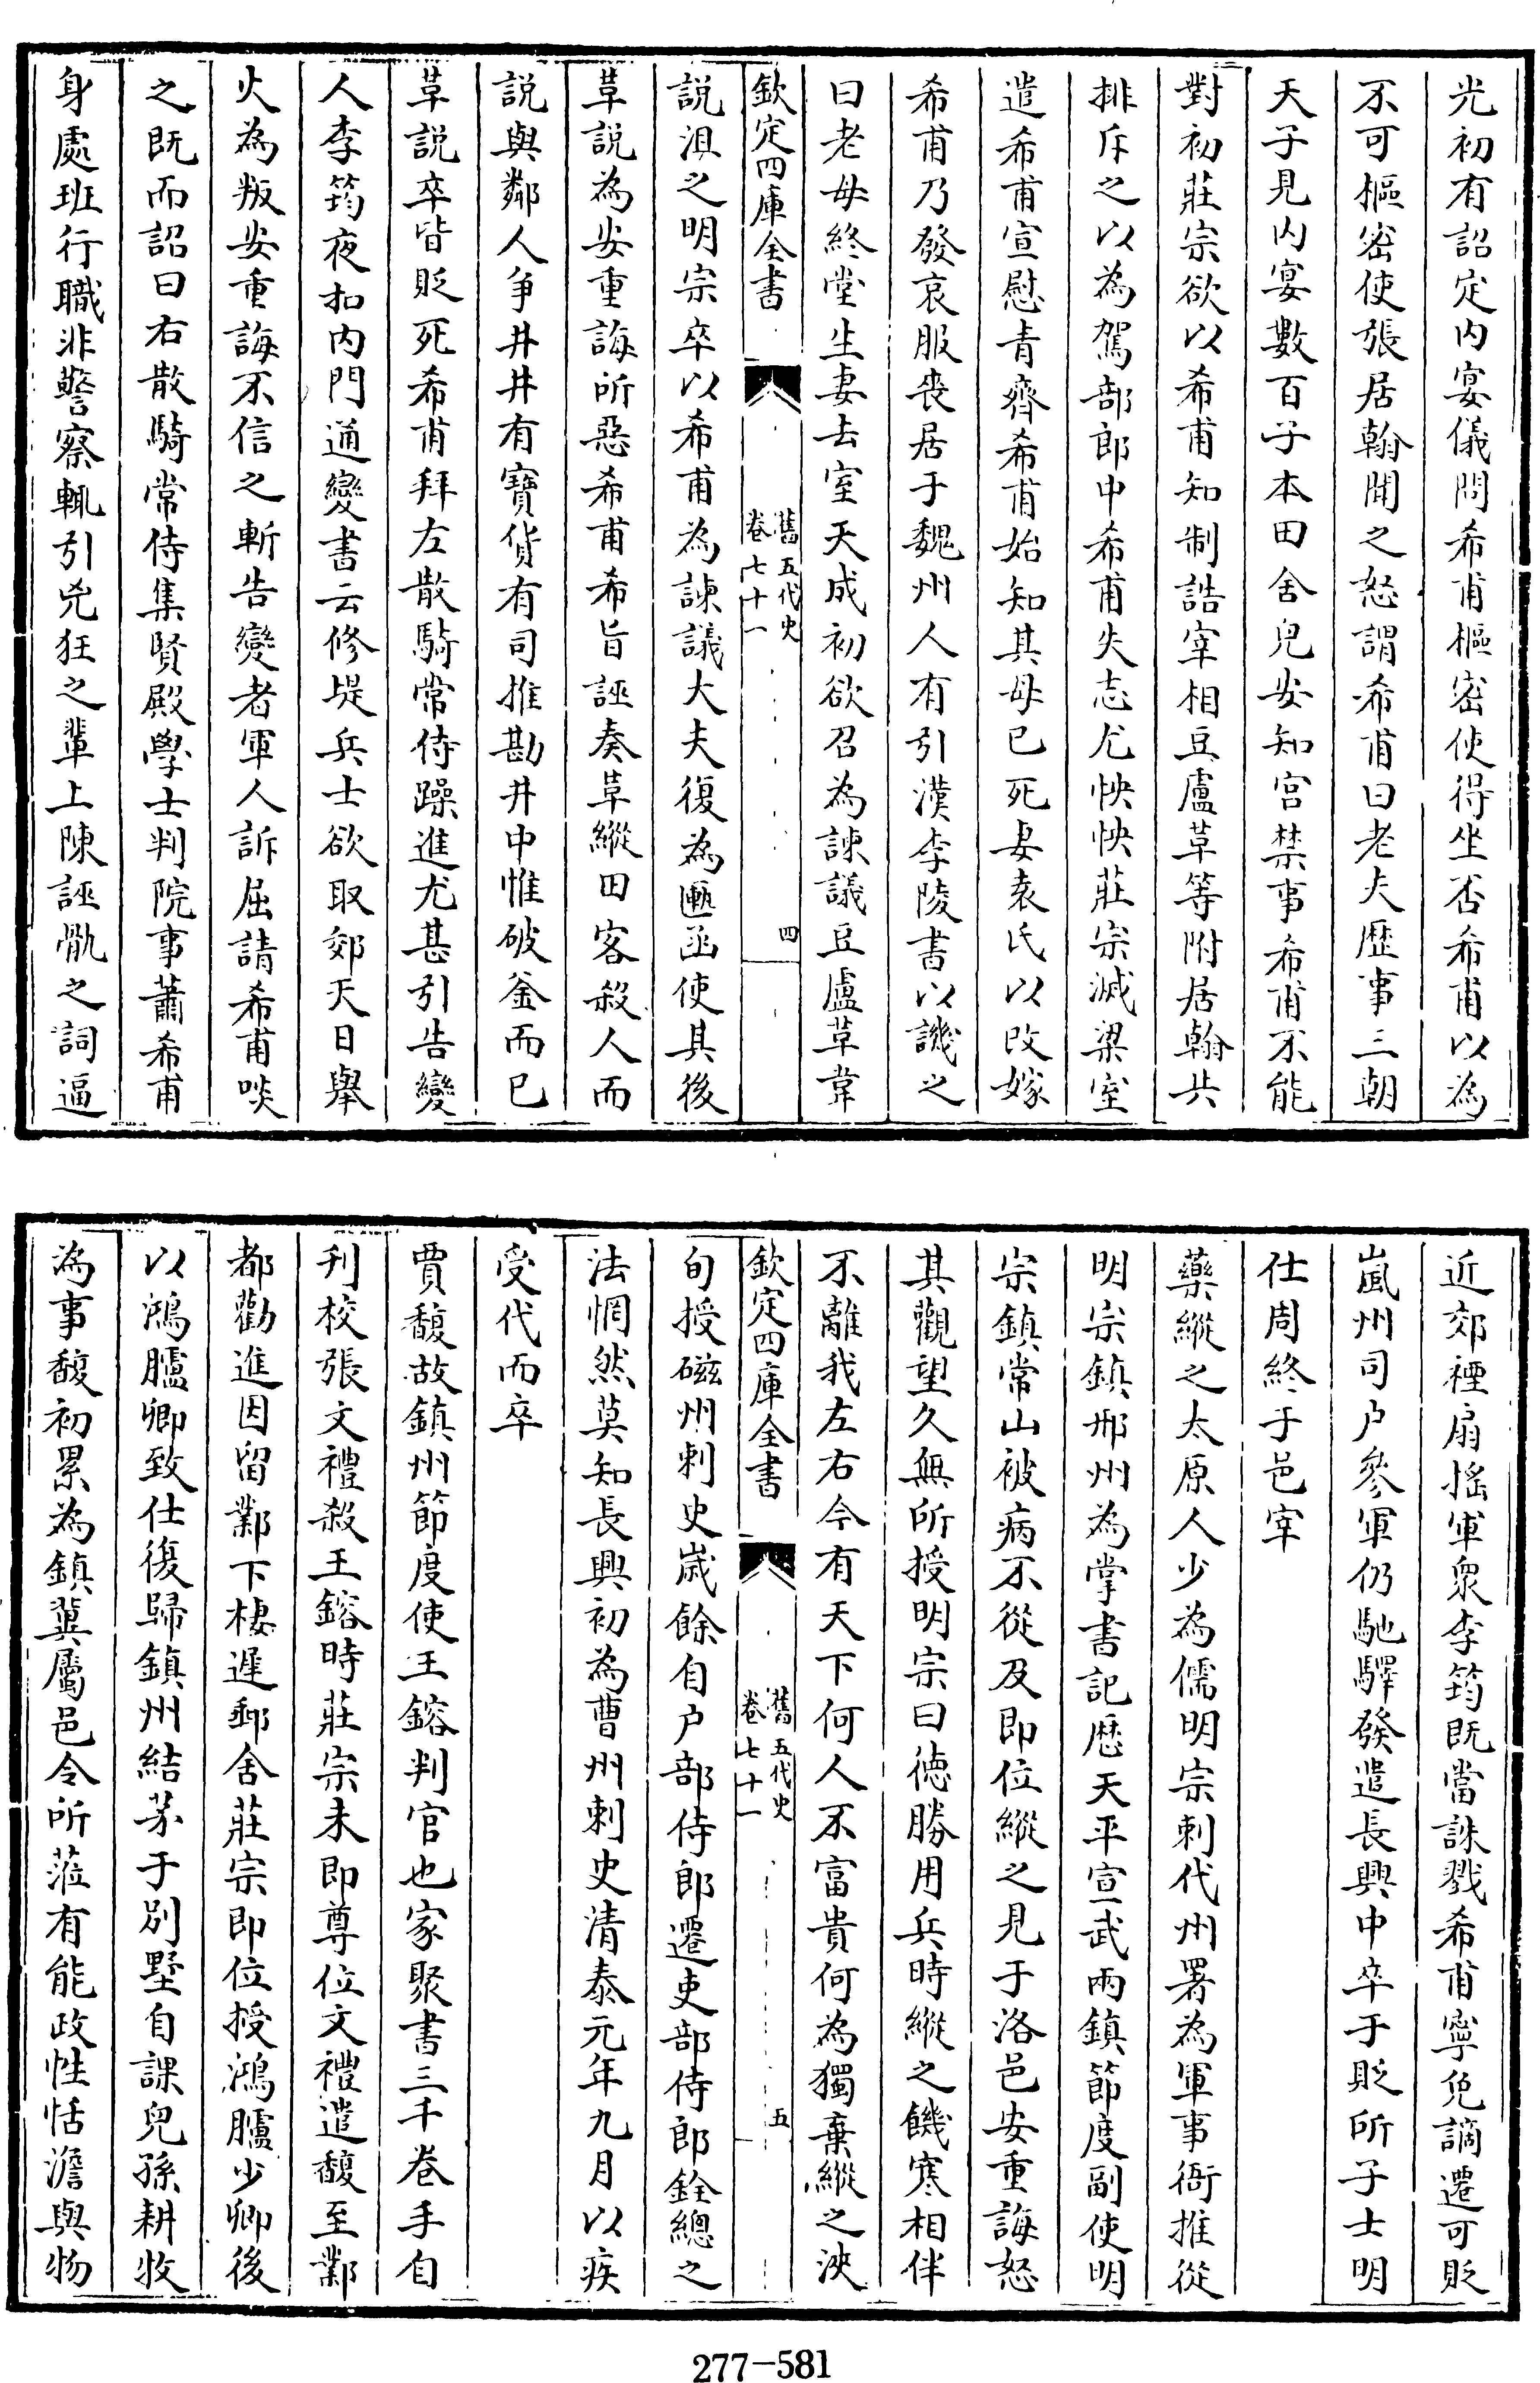 光初有詔定内宴儀問希甫樞密使得坐否希甫以為
不可樞密使張居翰聞之怒謂希甫曰老夫歴事三朝
天子見内宴數百子本田舍兒安知宫禁事希甫不能
對初莊宗欲以希甫知制誥宰相豆盧革等附居翰共
排斥之以為駕部郎中希甫失志尤怏怏莊宗滅梁室
遣希甫宣慰青齊希甫始知其母已死妻袁氏以改嫁
希甫乃發哀服喪居于魏州人有引漢李陵書以譏之
曰老母終堂生妻去室天成初欲召為諫議豆盧革韋
欽定四庫全書
舊五代史
卷七十一
四
說沮之明宗卒以希甫為諫議大夫復為匭函使其後
革說為安重誨所惡希甫希旨誣奏革縱田客殺人而
說與鄰人爭井井有寶貨有司推勘井中惟破釜而已
革說卒皆貶死希甫拜左散騎常侍躁進尤甚引告變
人李筠夜扣内門通變書云修堤兵士欲取郊天日舉
火為叛安重誨不信之斬告變者軍人訴屈請希甫啖
之既而詔曰右散騎常侍集賢殿學士判院事蕭希甫
身處班行職非警察輒引兇狂之輩上陳誣骩之詞逼
近郊禋扇搖軍衆李筠既當誅戮希甫寧免謫遷可貶
嵐州司户參軍仍馳驛發遣長興中卒于貶所子士明
仕周終于邑宰
藥縱之太原人少為儒明宗刺代州署為軍事衙推從
明宗鎮邢州為掌書記歴天平宣武兩鎮節度副使明
宗鎮常山被病不從及即位縱之見于洛邑安重誨怒
其觀望久無所授明宗曰德勝用兵時縱之饑寒相伴
不離我左右今有天下何人不富貴何為獨棄縱之浹
欽定四庫全書
舊五代史
卷七十一
五
旬授磁州刺史歲餘自户部侍郎遷吏部侍郎銓總之
法惘然莫知長興初為曹州刺史清泰元年九月以疾
受代而卒
賈馥故鎮州節度使王鎔判官也家聚書三千卷手自
刋校張文禮殺王鎔時莊宗未即尊位文禮遣馥至鄴
都勸進因留鄴下棲遲郵舍莊宗即位授鴻臚少卿後
以鴻臚卿致仕復歸鎮州結茅于別墅自課兒孫耕牧
為事馥初累為鎮冀屬邑令所蒞有能政性恬澹與物
277-581